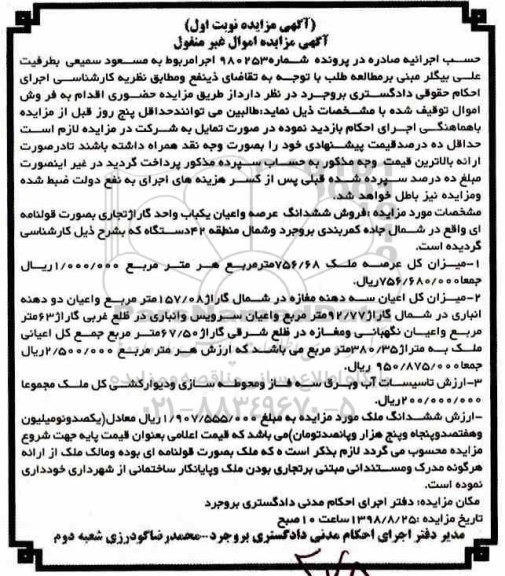 (آگهی مزایده نوبت اول)
آگهی مزایده اموال غیر منقول
حسب اجرائیه صادره در پرونده شماره ۹۸۰۲۵۳ اجرا مربوط به مسعود سمیعی بطرفیت
علی بیگلر مبنی بر مطالعه طلب با توجه به تقاضای ذینفع ومطابق نظریه کارشناسی اجرای
احکام حقوقی دادگستری بروجرد در نظر دارداز طریق مزایده حضوری اقدام به فروش
اموال توقیف شده با مشخصات ذیل نماید:طالبین می توانندحداقل پنج روز قبل از مزایده
باهماهنگی اجرای احکام بازدید نموده در صورت تمایل به شرکت در مزایده لازم است
حداقل ده درصدقیمت پیشنهادی خود را بصورت وجه نقد همراه داشته باشند تادرصورت
ارائه بالاترین قیمت وجه مذکور به حساب سپرده مذکور پرداخت گردید در غیر اینصورت
مبلغ ده درصد سپرده شده قبلی پس از کسر هزینه های اجرای به نفع دولت ضبط شده
ومزایده نیز باطل خواهد شد.
مشخصات مورد مزایده :فروش ششدانگ عرصه واعیان یکباب واحد گاراژتجاری بصورت قولنامه
ای واقع در شمال جاده کمربندی بروجرد وشمال منطقه ۴۲دستگاه که بشرح ذیل کارشناسی
گردیده است.
۱-میزان کل عرصه ملک ۷۵۶/۶۸مترمربع هر متر مربع ۱/۰۰۰/۰۰۰ریال
جمعا۷۵۶/۶۸۰/۰۰۰ریال.
۲-میزان کل اعیان سه دهنه مغازه در شمال گاراژ۱۵۷/۰۸متر مربع واعیان دو دهنه
انباری در شمال گاراژ۹۲/۷۷متر مربع واعیان سرویس وانباری در ظلع غربی گاراژ۶۳متر
مربع واعیان نگهبانی ومغازه در ظلع شرقی گاراژ۶۷/۵۰متر مربع جمع کل اعیانی
ملک به متراژ۳۸۰/۳۵متر مربع می باشد که ارزش هر متر مربع ۲/۵۰۰/۰۰۰ریال
جمعا۹۵۰/۸۷۵/۰۰۰ ریال.
۳-ارزش تاسیسات آب وبرق سه فاز ومحوطه سازی ودیوارکشی کل ملک مجموعا
۲۰۰/۰۰۰/۰۰۰ریال.
-ارزش ششدانگ ملک مورد مزایده به مبلغ ۱/۹۰۷/۵۵۵/۰۰۰ریال معادل(یکصدونومیلیون
وهفتصدوپنجاه وپنج هزار وپانصدتومان)می باشد که قیمت اعلامی بعنوان قیمت پایه جهت شروع
مزایده محسوب می گردد لازم بذکر است ه که ملک بصورت قولنامه ای بوده ومالک ملک از ارائه
هرگونه مدرک ومستنداتی مبتنی برتجاری بودن ملک وپایانکار ساختمانی از شهرداری خودداری
نموده است.
مکان مزایده: دفتر اجرای احکام مدنی دادگستری بروجرد
تاریخ مزایده :۱۳۹۸/۸/۲۵ساعت ۱۰صبح
مدیر دفتر اجرای احکام مدنی دادگستری بروجرد-محمدرضاگودرزی شعبه دوم